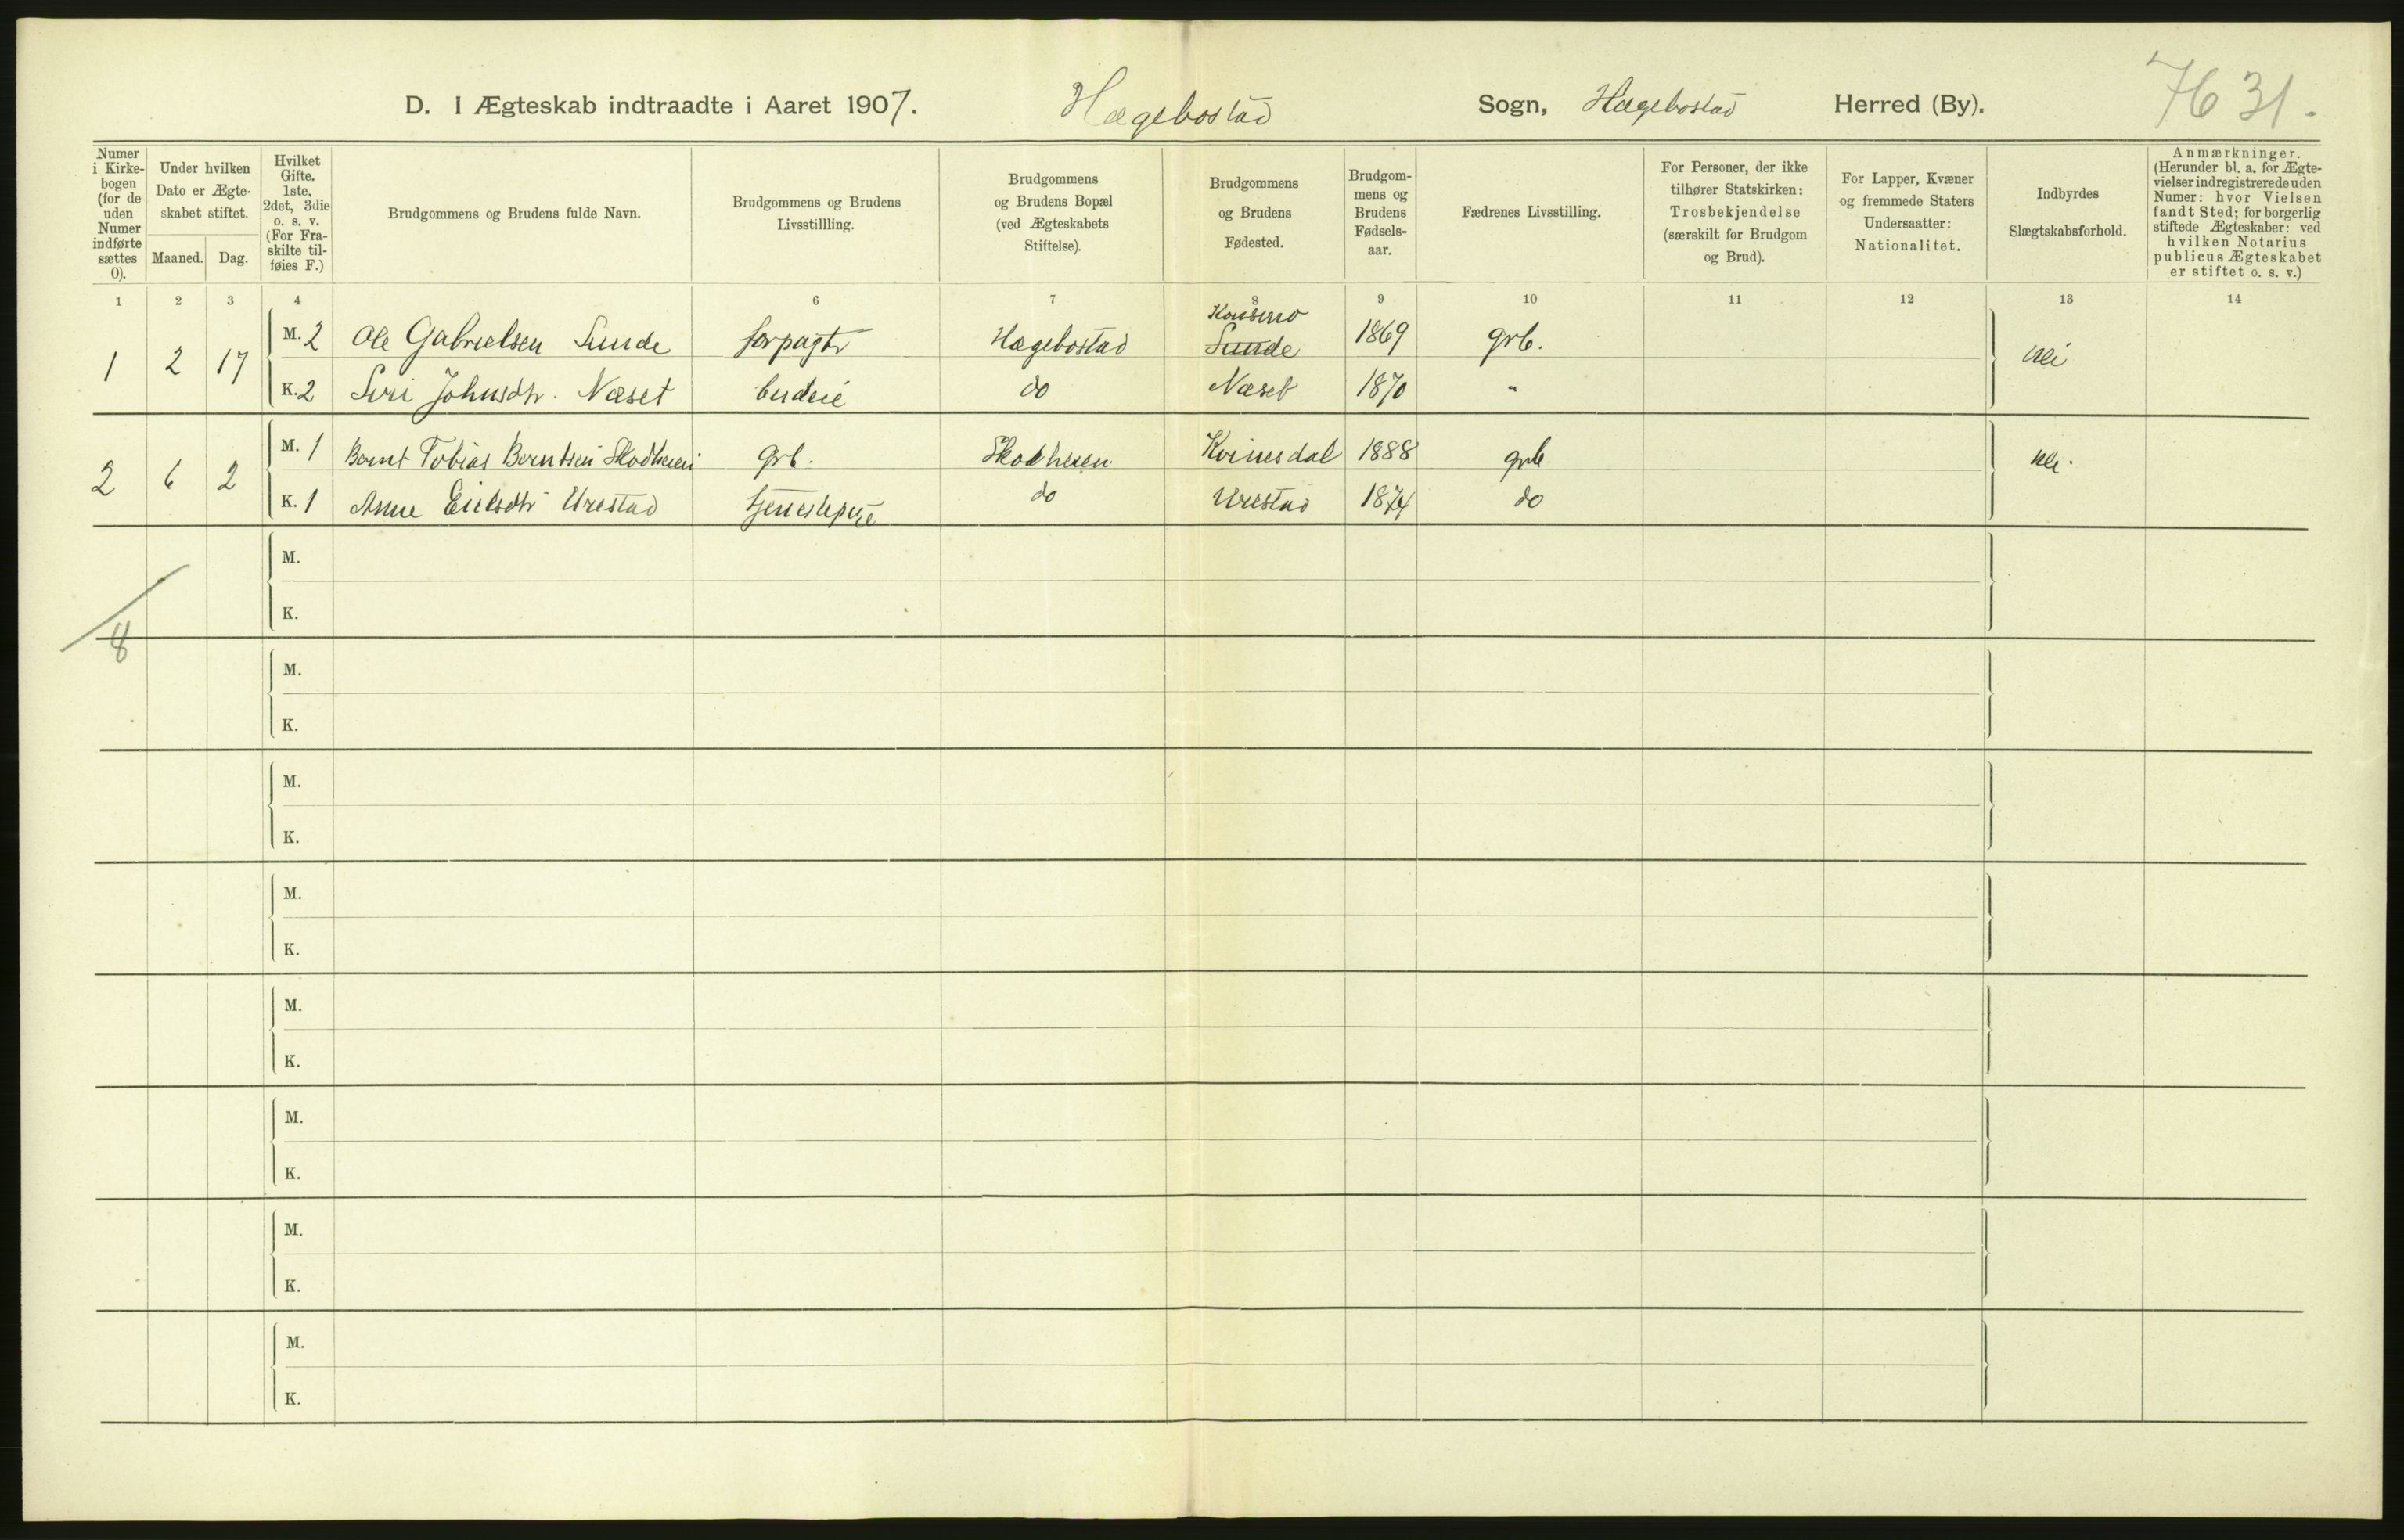 D. I Ægteskab indtraadte i Aaret 1907. Hægebostad Sogn, Hægebostad Herred (By). 7631.
Numer i Kirkebogen (for de uden Numer indførte sættes 0).
Under hvilken Dato er Ægteskabet stiftet.
Maaned. Dag.
Hvilket Gifte. 1ste, 2det, 3die o. s. v. (For Fraskilte tilføies F.)
Brudgommens og Brudens fulde Navn.
Brudgommens og Brudens Livsstillling.
Brudgommens og Brudens Bopæl (ved Ægteskabets Stiftelse).
Brudgommens og Brudens Fødested.
Brudgommens og Brudens Fødselsaar.
Fædrenes Livsstilling.
For Personer, der ikke tilhører Statskirken: Trosbekjendelse (særskilt for Brudgom og Brud).
For Lapper, Kvæner og fremmede Staters Undersaatter: Nationalitet.
Indbyrdes Slægtskabsforhold.
Anmærkninger. (Herunder bl. a. for Ægtevielser indregistrerede uden Numer: hvor Vielsen fandt Sted; for borgerlig stiftede Ægteskaber: ved hvilken Notarius publicus Ægteskabet er stiftet o. s. v.)
1 2 3 4 6 7 8 9 10 11 12 13 14
1 2 17 M. 2 Ole Gabrielsen Sunde forpagtr Hægebostad Sunde 1869 grb.
K. 2 Siri Johnsdtr. Næset budeie do Næset 1870 "
2 6 2 M. 1 Bernt Tobias Berntsen Skodheien grb. Skodheien Kvinesdal 1888 grb
K. 1 Anne Eielsdtr Urestad tjenestepige do Urestad 1874 do
M.
K.
8
M.
K.
M.
K.
M.
K.
M.
K.
M.
K.
M.
K.
M.
K.